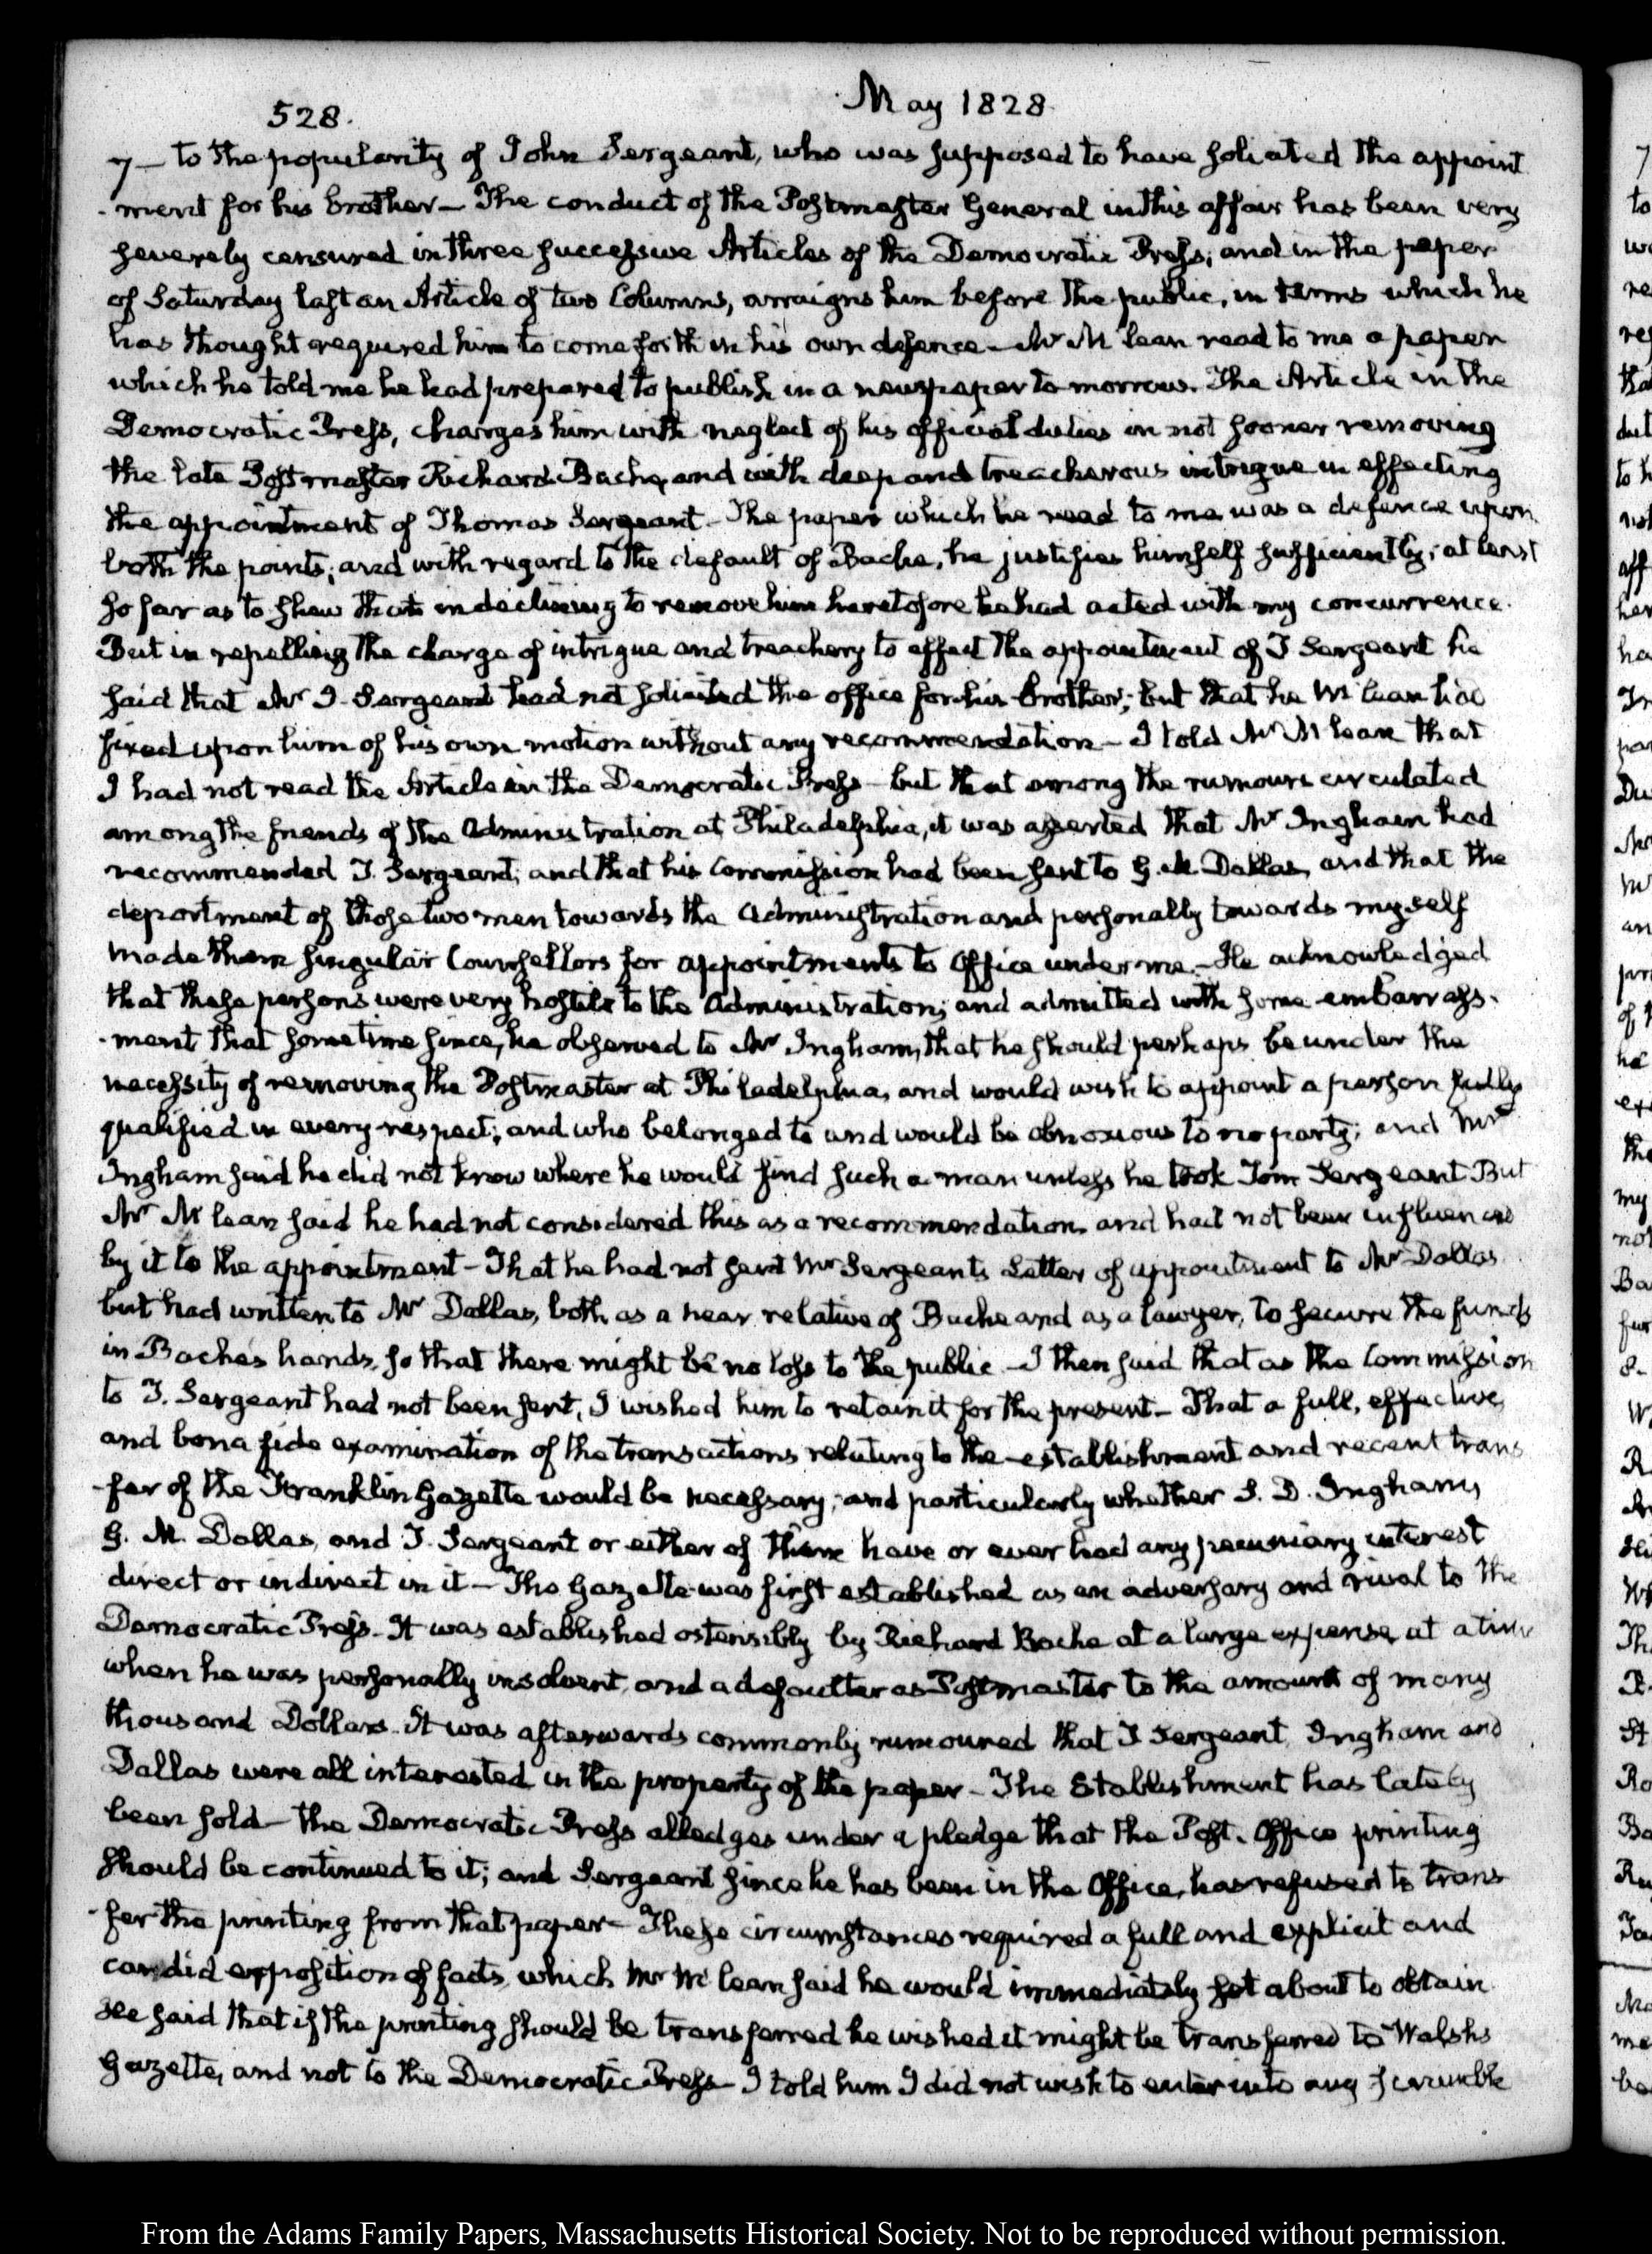 528.
May 1828
7 — to the popularity of John Sergeant, who was supposed to have soliated the appoint
-ment for his brother — The conduct of the Postmaster General in this affair has been very
severely censured in three successive Articles of the Democratic Press; and in the paper
of Saturday last an Article of two Columns, arraigns him before the public, in terms which he
has thought required him to come forth in his own defence — Mr McLean read to me a paper
which he told me he had prepared to publish in a newspaper to-morrow. The Article in the
Democratic Press, charges him with neglect of his official duties in not sooner removing
the late Postmaster Richard Bache, and with deep and treacherous intrigue in effecting
the appointment of Thomas Sergeant — The paper which he read to me was a defence upon
both the points; and with regard to the default of Bache, he justifies himself sufficiently; at least
so far as to shew that in declining to remove him heretofore he had acted with my concurrence.
But in repelling the charge of intrigue and treachery to effect the appointment of T Sergeant he
said that Mr J. Sergeant had not solicited the office for his brother; but that he McLean had
fixed upon him of his own motion without any recommendation — I told Mr McLean that
I had not read the Article in the Democratic Press — but that among the rumours circulated
among the friends of the Administration at Philadelphia, it was asserted that Mr Ingham had
recommended T. Sergeant; and that his Commission had been sent to G. M. Dallas, and that the
deportment of those two men towards the Administration and personally towards myself
made them singular Counsellors for appointments to Office under me. — He acknowledged
that these persons were very hostile to the Administration; and admitted with some embarrass-
-ment that sometime since, he observed to Mr Ingham, that he should perhaps be under the
necessity of removing the Postmaster at Philadelphia, and would wish to appoint a person fully
qualified in every respect; and who belonged to and would be obnoxious to no party; and Mr
Ingham said he did not know where he would find such a man unless he took Tom Sergeant. But
Mr McLean said he had not considered this as a recommendation and had not been influenced
by it to the appointment — That he had not sent Mr Sergeants Letter of appointment to Mr Dallas
but had written to Mr Dallas, both as a near relative of Bache and as a lawyer, to secure the funds
in Bache's hands, so that there might be no loss to the public — I then said that as the Commission
to T. Sergeant had not been sent, I wished him to retain it for the present — That a full, effective,
and bona fide examination of the transactions relating to the establishment and recent trans
-fer of the Franklin Gazette would be necessary; and particularly whether S. D. Ingham,
G. M. Dallas, and T. Sergeant or either of them have or ever had any pecuniary interest
direct or indirect in it — The Gazette was first established as an adversary and rival to the
Democratic Press. It was established ostensibly by Richard Bache at a large expense, at a time
when he was personally insolvent, and a defaulter as Postmaster to the amount of many
thousand Dollars. It was afterwards commonly rumoured that T Sergeant, Ingham and
Dallas were all interested in the property of the paper — The Establishment has lately
been sold — the Democratic Press alledges under a pledge that the Post-Office printing
should be continued to it; and Sergeant since he has been in the Office, has refused to trans
-fer the printing from that paper — These circumstances required a full and explicit and
candid exposition of facts, which Mr McLean said he would immediately set about to obtain.
He said that if the printing should be transferred he wished it might be transferred to Walsh's
Gazette, and not to the Democratic Press — I told him I did not wish to enter into any scramble
From the Adams Family Papers, Massachusetts Historical Society. Not to be reproduced without permission.